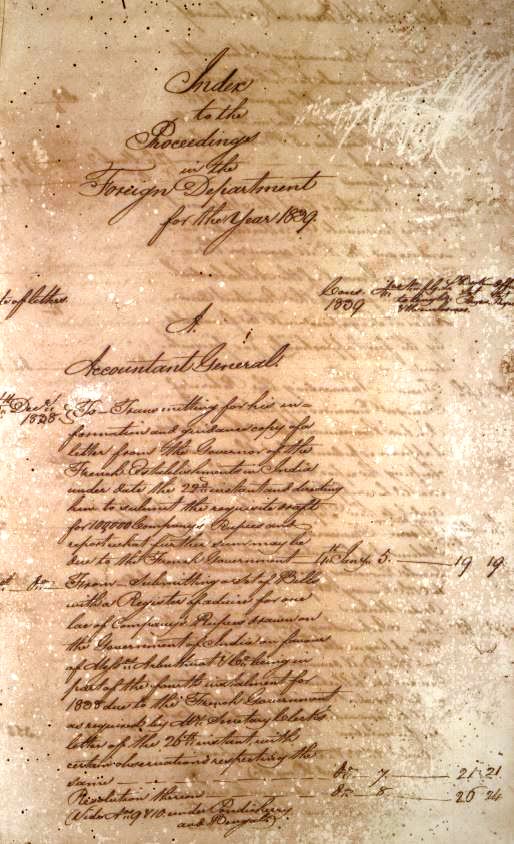 Index
to the
Proceedings
in the
Foreign Department
for the Year 1839
of letters.
Cons.
1839
A.
Accountant General.
Dec.r
1838
To – Transmitting for his in-
formation and guidance copy of a
letter from the Governor of the
French Establishments in India
under date the 22d instant and directing
him to submit the requisite draft
for 100000 Company's Rupees and
report what further sum may be
due to the French Government 5. 19 19
From – Submitting a Set of Bills
with a Register of advice for one
lac of Company's Rupees drawn on
the Government of India in favour
of Mess.rs & Co. being in
part of the fourth instalment for
1838 due to the French Government
as required by Mr. Secretary
letter of the 26th instant, with
certain observations respecting the
same Do. 7 21 21
Resolution thereon Do. 8 26 24
(Vide 9 & 10 under Pondicherry
and Bengal)